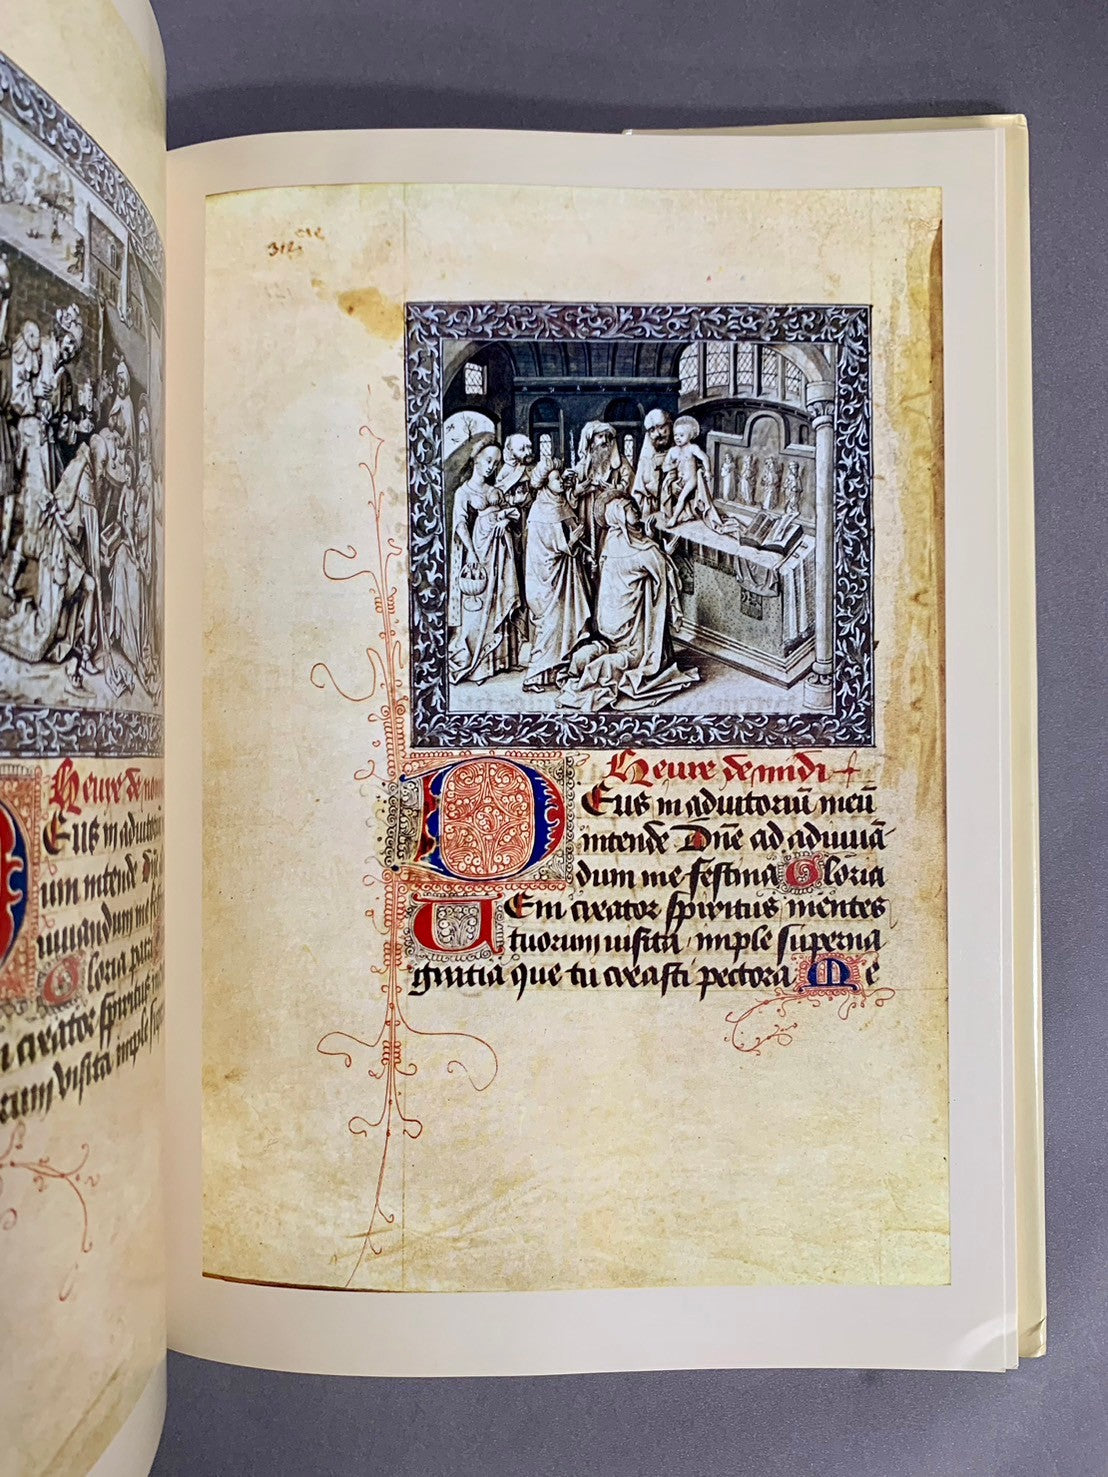 Heure de
Eus in adiutoriu
um intende Dne
iuuandum me fes
Gloria patri
creator spiritus
tuum visita imple
312
Heure de midi
DEus in adiutoriū meū
intende Dñe ad adiuuā
dum me festina Gloria
UEni creator spiritus mentes
tuorum visita imple superna
gratia que tu creasti pectora Me